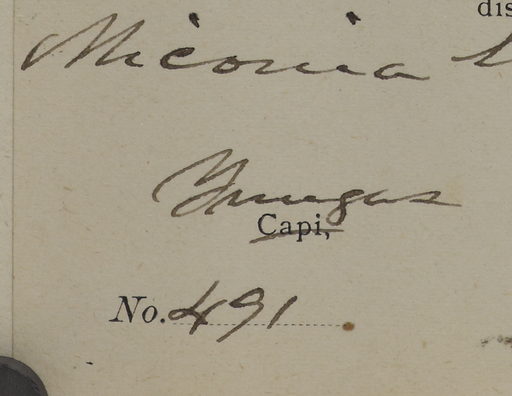 dis
Miconia
Yungas
Capi,
No. 491